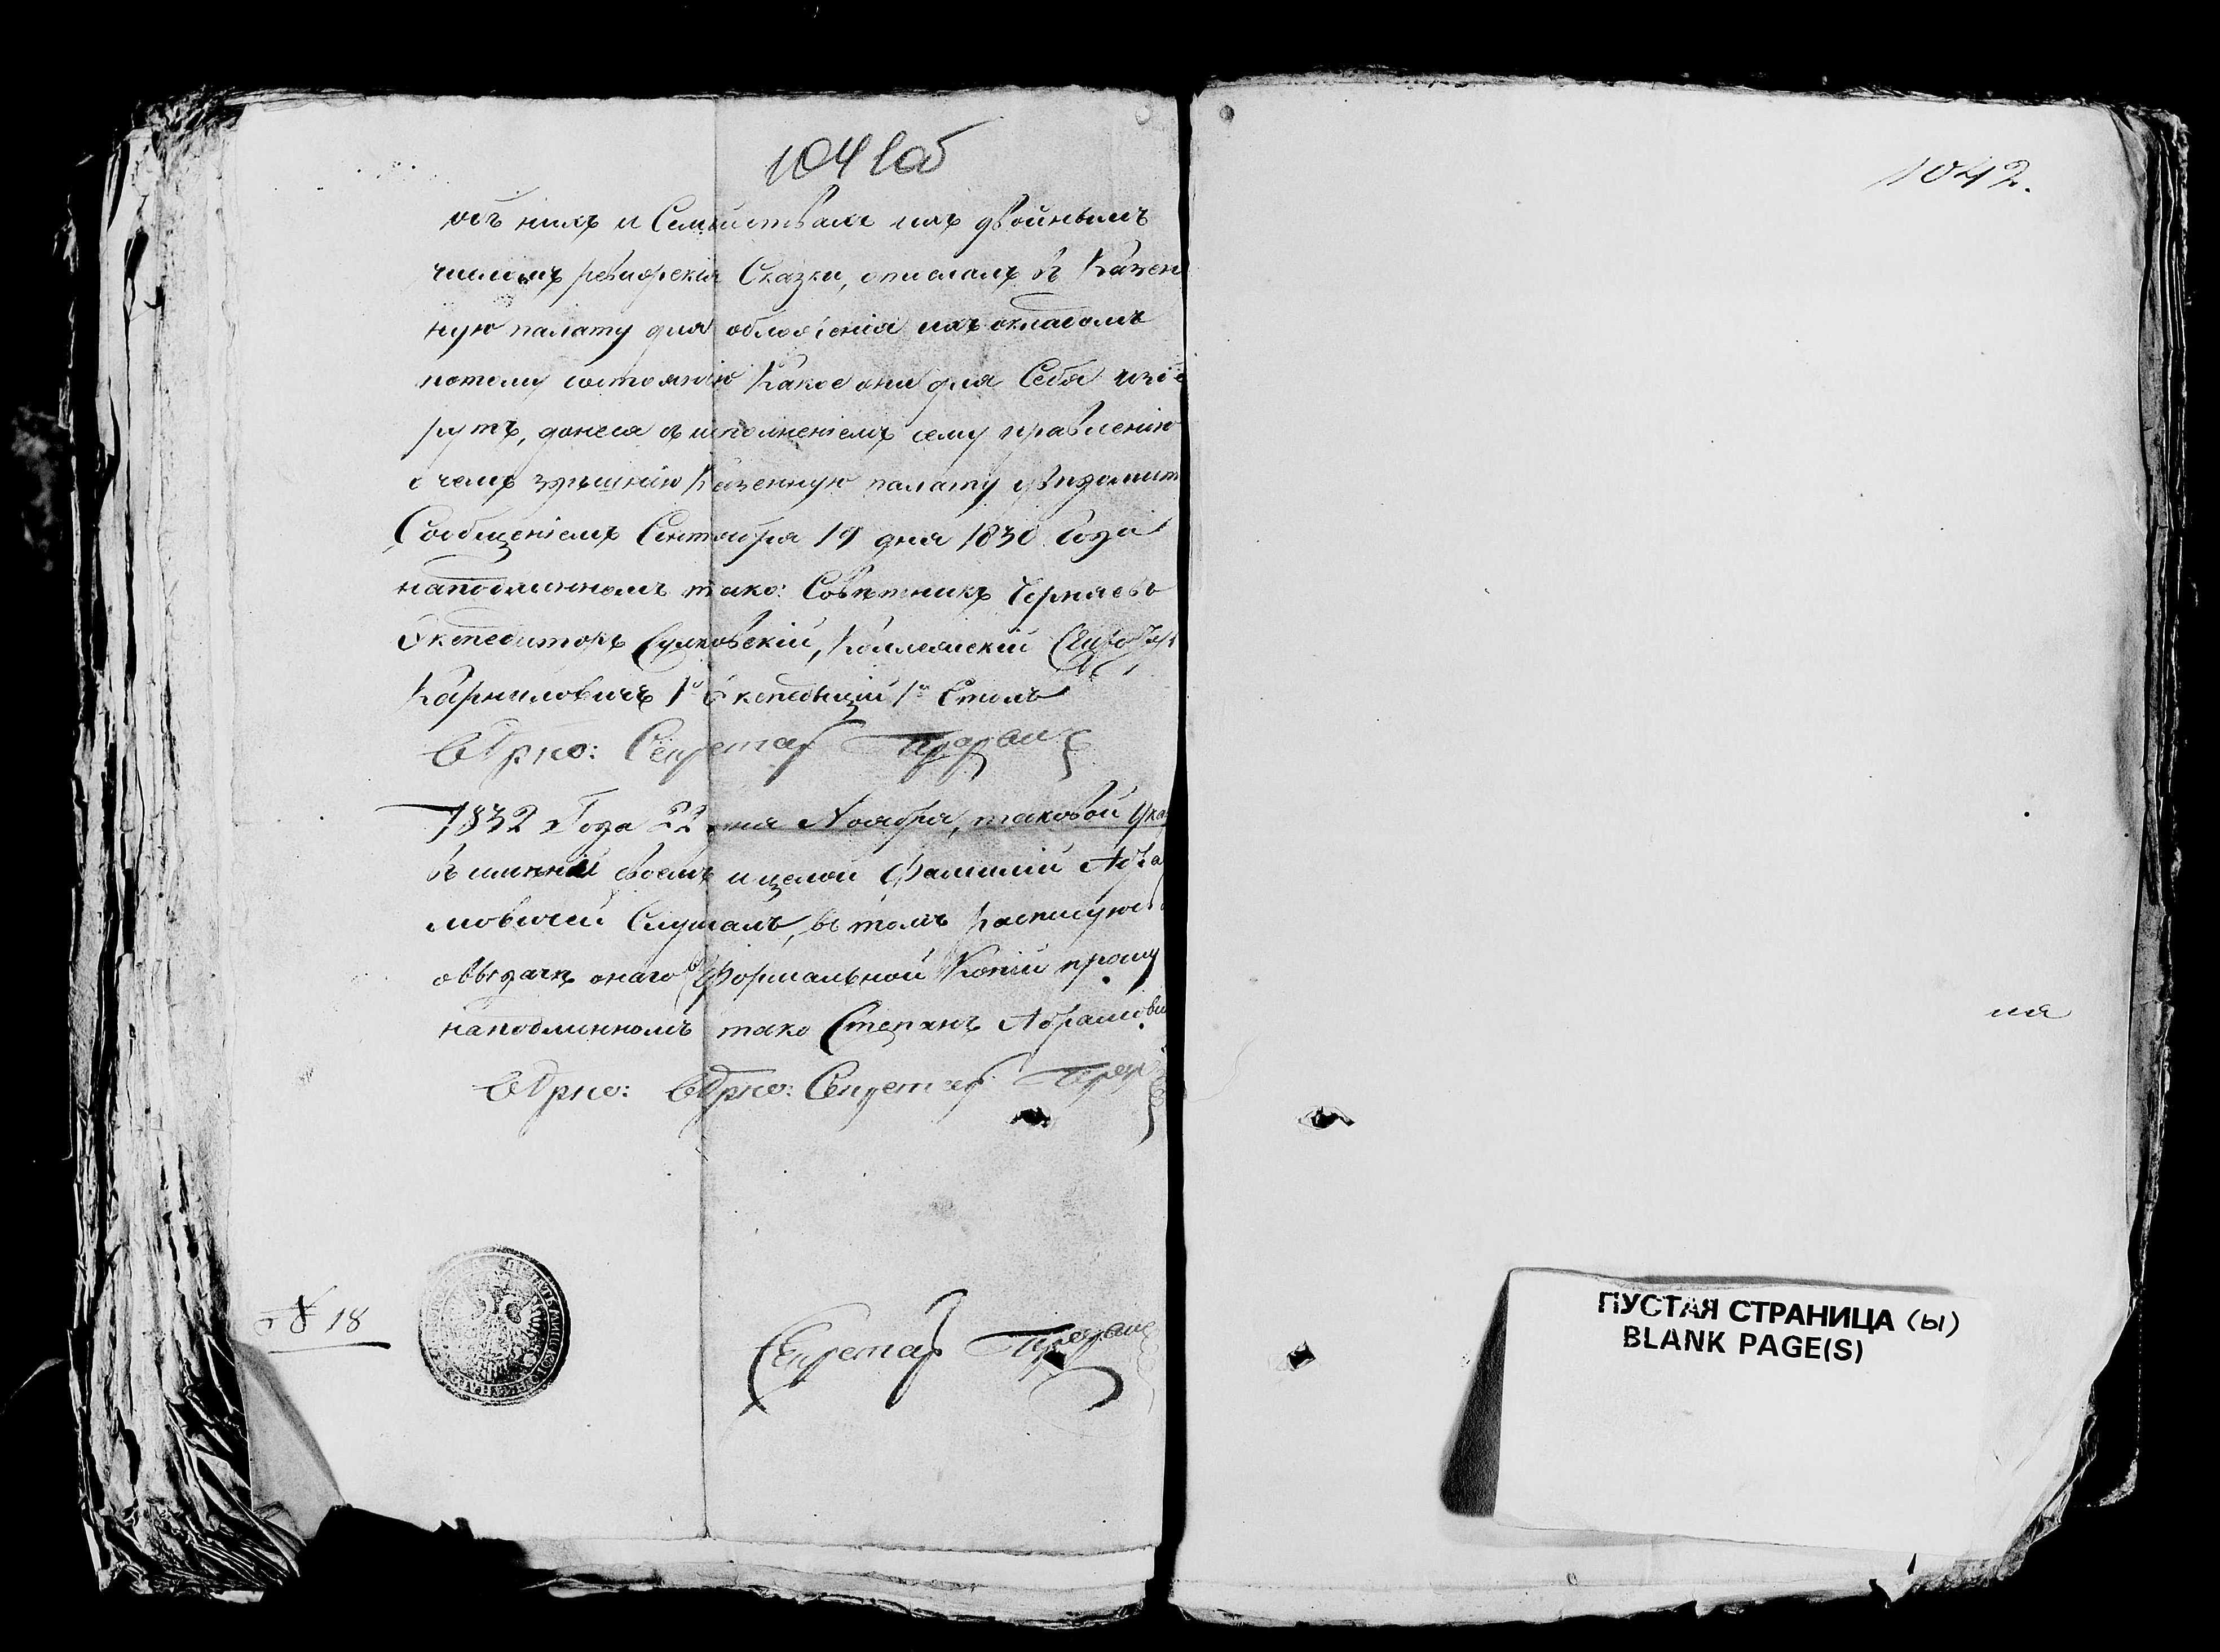 1041об
объ нихъ и Семействахъ ихъ двойнымъ
числомъ ревизскія Сказки, отослалъ въ Казен
ную палату для обложенія ихъ окладомъ
потому состоянію какое они для Себя избе
рутъ, донеся съ исполненіемъ сему правленію
о чемъ здѣшнюю Казенную палату увѣдомит
Сообщеніемъ Сентября 19 дня 1830 Года
наподлинномъ тако: Совѣтникъ Черняевъ
Экспедиторъ Сулковскій, Коллежскій Секретарь
Карниловичъ 1й Экспедиціи 1й Столъ
Вѣрно: Секретарь
1832 Года 22 дня Ноября, таковой Ука
въ имени своемъ и целой Фамиліи Абра
мовичей Слушалъ, въ томъ росписуюсь
о выдачѣ онаго въ Формальной Копіи прошу
наподлинномъ тако Степанъ Абрамови
Вѣрно: Вѣрно: Секретарь
№ 18
Секретарь
1042.
ия
ПУСТАЯ СТРАНИЦА (Ы)
BLANK PAGE(S)